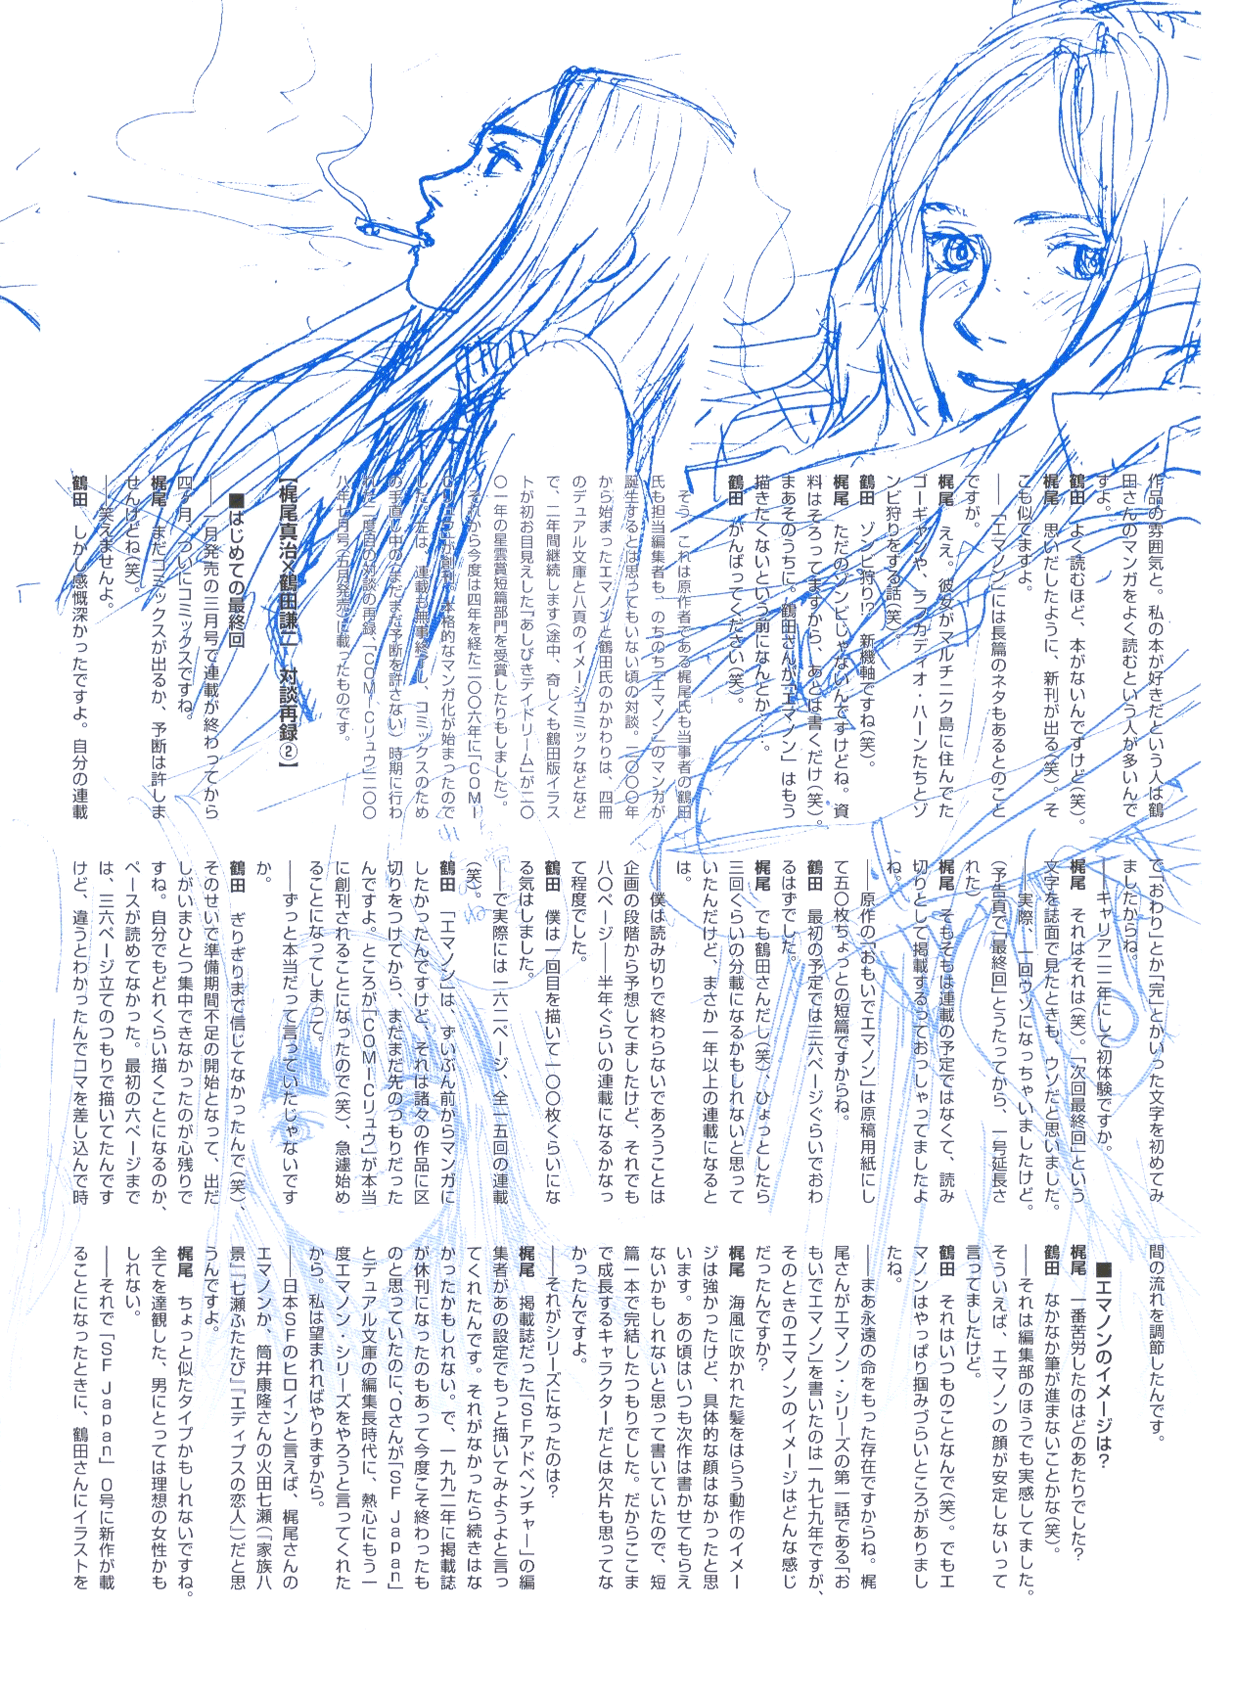 作品の雰囲気と。私の本が好きだという人は鶴
田さんのマンガをよく読むという人が多いんで
すよ。
鶴田　よく読むほど、本がないんですけど(笑)。
梶尾　思いだしたように、新刊が出る(笑)。そ
こも似てますよ。
――「エマノン」には長篇のネタもあるとのこと
ですが。
梶尾　ええ。彼女がマルチニーク島に住んでた
ゴーギャンや、ラフカディオ・ハーンたちとゾ
ンビ狩りをする話(笑)。
鶴田　ゾンビ狩り!?　新機軸ですね(笑)。
梶尾　ただのゾンビじゃないんですけどね。資
料はそろってますから、あとは書くだけ(笑)。
まあそのうちに。鶴田さんが「エマノン」はもう
描きたくないという前になんとか……。
鶴田　がんばってください(笑)。
　そう、これは原作者である梶尾氏も当事者の鶴田
氏も担当編集者も、のちのち「エマノン」のマンガが
誕生するとは思ってもいない頃の対談。二〇〇〇年
から始まったエマノンと鶴田氏のかかわりは、四冊
のデュアル文庫と八頁のイメージコミックなどなど
で、二年間継続します(途中、奇しくも鶴田版イラス
トが初お目見えした「あしびきデイドリーム」が二〇
〇一年の星雲賞短篇部門を受賞したりもしました)。
　それから今度は四年を経た二〇〇六年に「COMI
Cリュウ」が創刊。本格的なマンガ化が始まったので
した。左は、連載も無事終了し、コミックスのため
の手直し中の(まだまだ予断を許さない)時期に行わ
れた二度目の対談の再録、「COMICリュウ」二〇〇
八年七月号(五月発売)に載ったものです。
【梶尾真治×鶴田謙二　対談再録②】
■はじめての最終回
――一月発売の三月号で連載が終わってから
四ヶ月、ついにコミックスですね。
梶尾　まだコミックスが出るか、予断は許しま
せんけどね(笑)。
――笑えませんよ。
鶴田　しかし感慨深かったですよ。自分の連載
で「おわり」とか「完」とかいった文字を初めてみ
ましたからね。
――キャリア二二年にして初体験ですか。
梶尾　それはそれは(笑)。「次回最終回」という
文字を誌面で見たときも、ウソだと思いました。
――実際、一回ウソになっちゃいましたけど。
(予告頁で「最終回」とうたってから、一号延長さ
れた)
梶尾　そもそもは連載の予定ではなくて、読み
切りとして掲載するっておっしゃってましたよ
ね。
――原作の「おもいでエマノン」は原稿用紙にし
て五〇枚ちょっとの短篇ですからね。
鶴田　最初の予定では三六ページぐらいでおわ
るはずでした。
梶尾　でも鶴田さんだし(笑)、ひょっとしたら
三回くらいの分載になるかもしれないと思って
いたんだけど、まさか一年以上の連載になると
は。
――僕は読み切りで終わらないであろうことは
企画の段階から予想してましたけど、それでも
八〇ページ――半年ぐらいの連載になるかなっ
て程度でした。
鶴田　僕は一回目を描いて一〇〇枚くらいにな
る気はしました。
――で実際には一六二ページ、全一五回の連載
(笑)。
鶴田　「エマノン」は、ずいぶん前からマンガに
したかったんですけど、それは諸々の作品に区
切りをつけてから、まだまだ先のつもりだった
んですよ。ところが「COMICリュウ」が本当
に創刊されることになったので(笑)、急遽始め
ることになってしまって。
――ずっと本当だって言っていたじゃないです
か。
鶴田　ぎりぎりまで信じてなかったんで(笑)、
そのせいで準備期間不足の開始となって、出だ
しがいまひとつ集中できなかったのが心残りで
すね。自分でもどれくらい描くことになるのか、
ペースが読めてなかった。最初の六ページまで
は、三六ページ立てのつもりで描いてたんです
けど、違うとわかったんでコマを差し込んで時
間の流れを調節したんです。
■エマノンのイメージは?
梶尾　一番苦労したのはどのあたりでした?
鶴田　なかなか筆が進まないことかな(笑)。
――それは編集部のほうでも実感してました。
そういえば、エマノンの顔が安定しないって
言ってましたけど。
鶴田　それはいつものことなんで(笑)。でもエ
マノンはやっぱり掴みづらいところがありまし
たね。
――まあ永遠の命をもった存在ですからね。梶
尾さんがエマノン・シリーズの第一話である「お
もいでエマノン」を書いたのは一九七九年ですが、
そのときのエマノンのイメージはどんな感じ
だったんですか?
梶尾　海風に吹かれた髪をはらう動作のイメー
ジは強かったけど、具体的な顔はなかったと思
います。あの頃はいつも次作は書かせてもらえ
ないかもしれないと思って書いていたので、短
篇一本で完結したつもりでした。だからここま
で成長するキャラクターだとは欠片も思ってな
かったんですよ。
――それがシリーズになったのは?
梶尾　掲載誌だった「SFアドベンチャー」の編
集者があの設定でもっと描いてみようよと言っ
てくれたんです。それがなかったら続きはな
かったかもしれない。で、一九九二年に掲載誌
が休刊になったのもあって今度こそ終わったも
のと思っていたのに、Oさんが「SF Japan」
とデュアル文庫の編集長時代に、熱心にもう一
度エマノン・シリーズをやろうと言ってくれた
から。私は望まれればやりますから。
――日本SFのヒロインと言えば、梶尾さんの
エマノンか、筒井康隆さんの火田七瀬(『家族八
景』『七瀬ふたたび』『エディプスの恋人』)だと思
うんですよ。
梶尾　ちょっと似たタイプかもしれないですね。
全てを達観した、男にとっては理想の女性かも
しれない。
――それで「SF Japan」0号に新作が載
ることになったときに、鶴田さんにイラストを